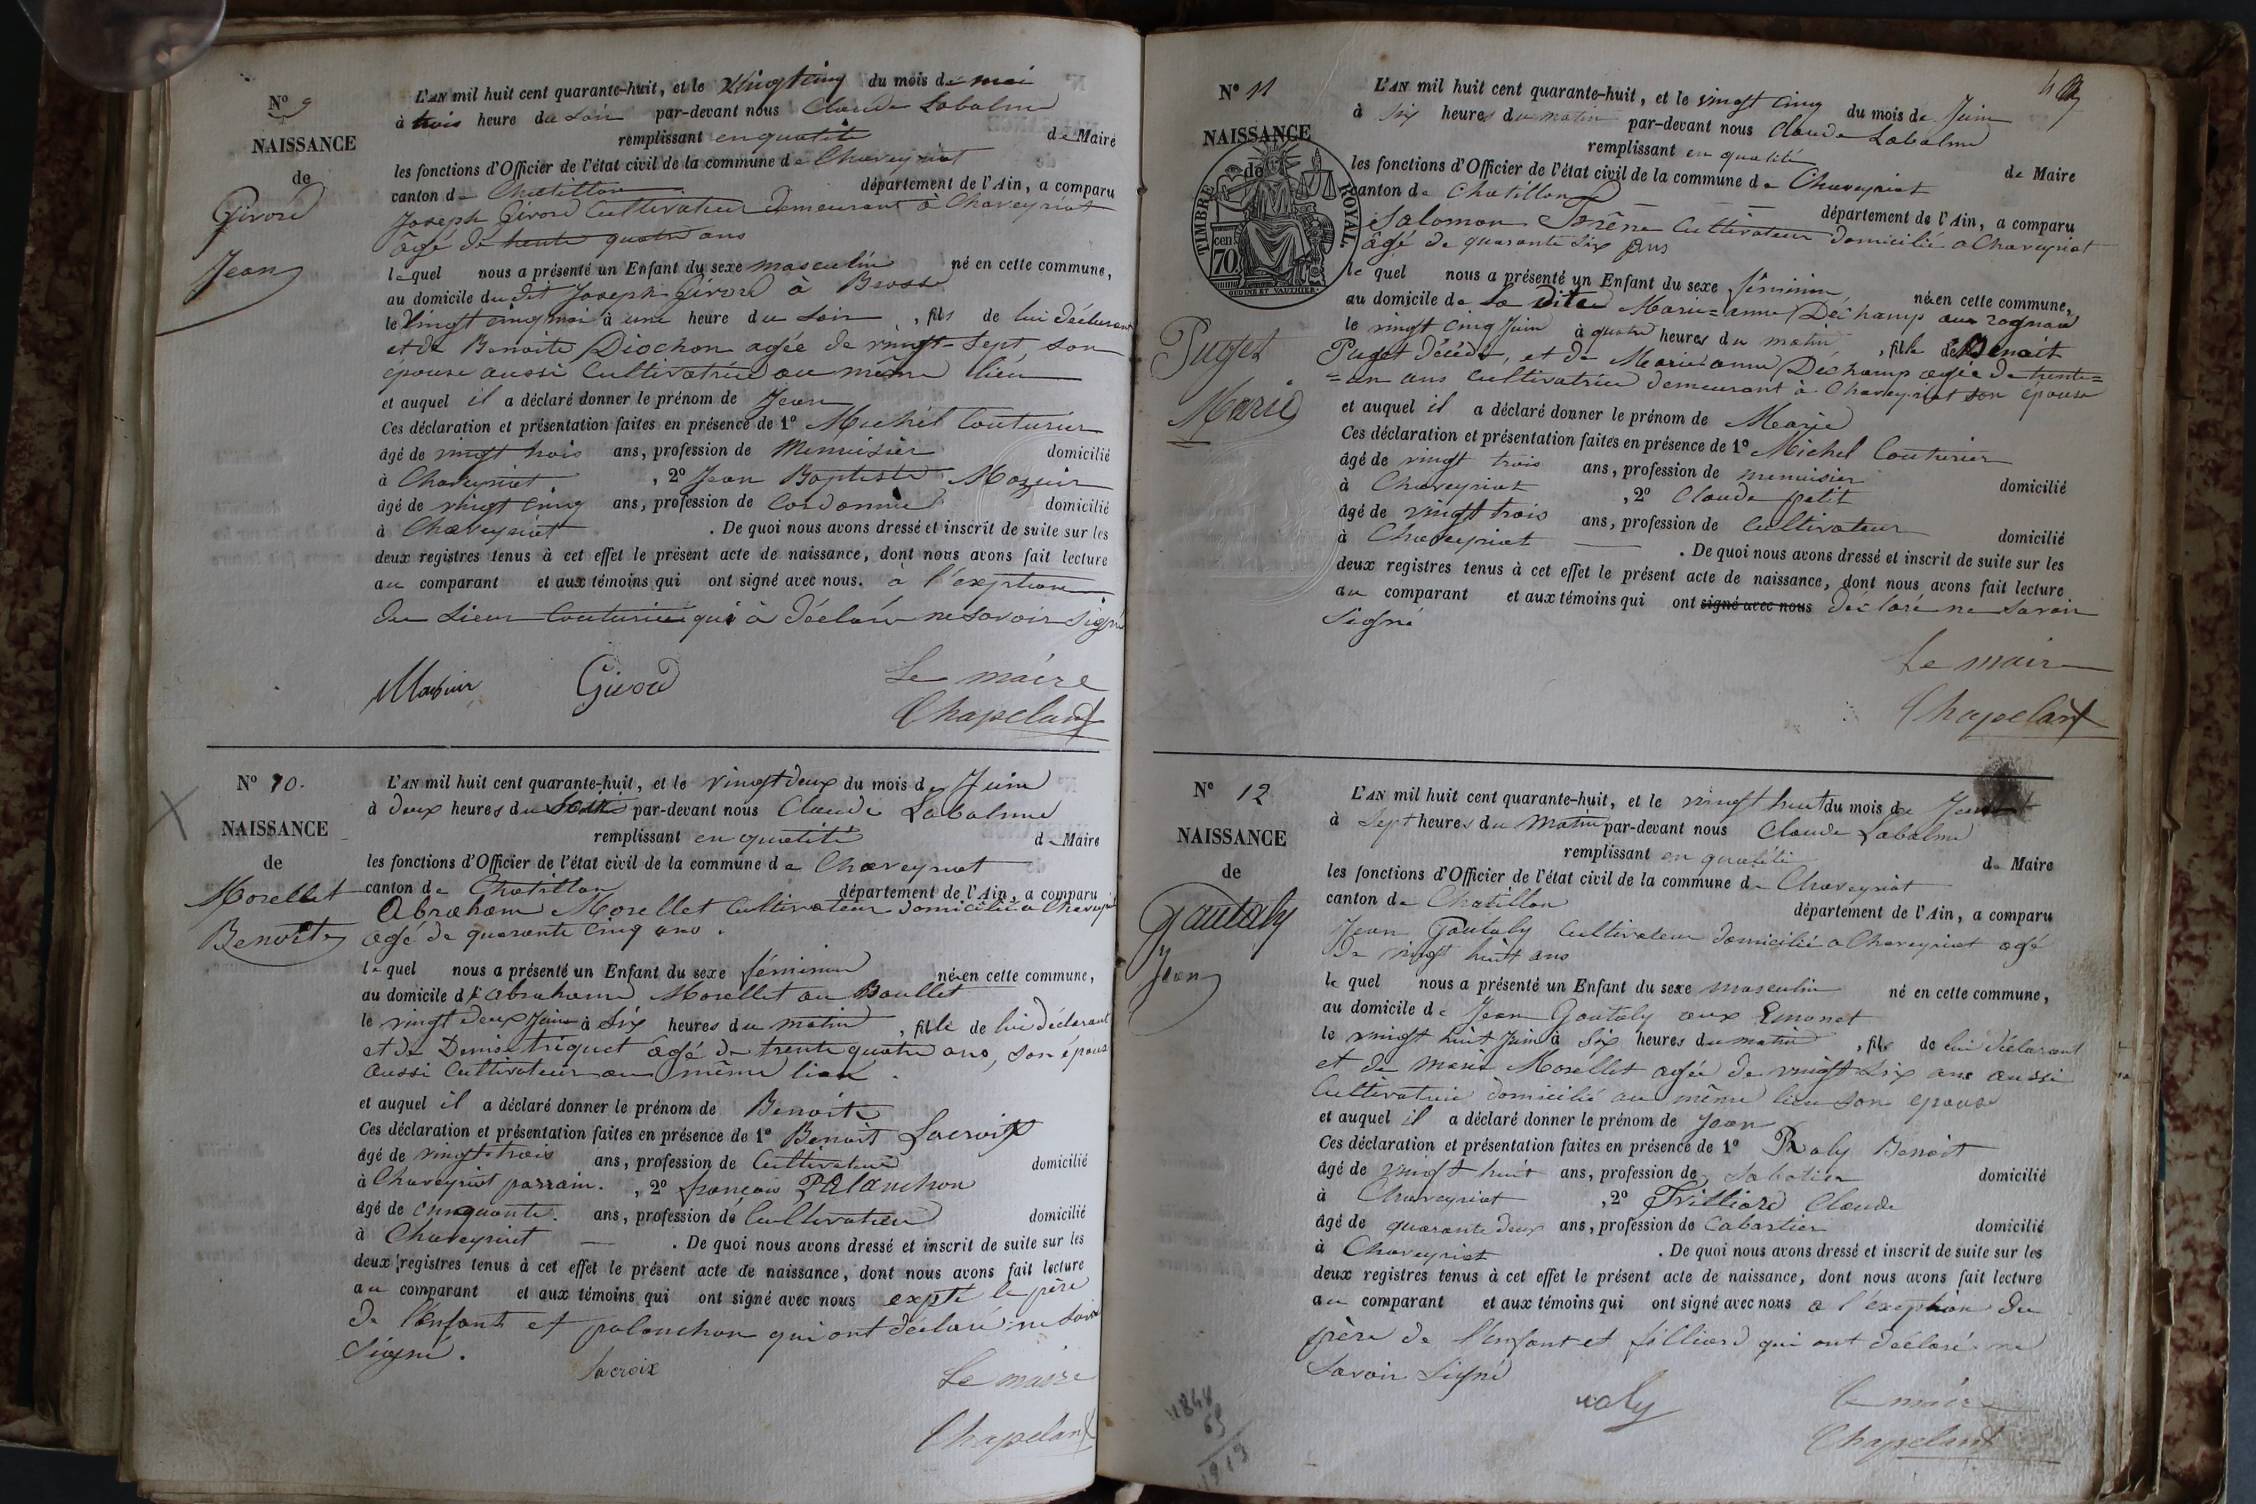 N° 9
NAISSANCE
de
Girord
Jean
L'AN mil huit cent quarante-huit, et le vingt cinq du mois de mai
à trois heure du soir par-devant nous Claude Labalme
remplissant en qualité de Maire
les fonctions d'Officier de l'état civil de la commune de Chaveyriat
canton de Chatillon département de l'Ain, a comparu
Joseph Girord Cultivateur demeurant à Chaveyriat
âgé de trente quatre ans
lequel nous a présenté un Enfant du sexe masculin né en cette commune,
au domicile du dit Joseph Girord à Brosse
le vingt cinq mai à une heure du soir, fils de lui déclarant
et de Benoite Diochon agée de vingt-sept, son
épouse aussi Cultivatrice au même lieu
et auquel il a déclaré donner le prénom de Jean
Ces déclaration et présentation faites en présence de 1° Michel Couturier
âgé de vingt trois ans, profession de Menuisier domicilié
à Chaveyriat, 2° Jean Baptiste Mozuir
âgé de vingt cinq ans, profession de Cordonnié domicilié
à Chaveyriat. De quoi nous avons dressé et inscrit de suite sur les
deux registres tenus à cet effet le présent acte de naissance, dont nous avons fait lecture
au comparant et aux témoins qui ont signé avec nous. à l'exeption
du sieur Couturier qui à déclaré ne savoir signé
Girord
Le maire
Chapelant
N° 10.
NAISSANCE
de
Morellet
Benoite
L'AN mil huit cent quarante-huit, et le vingt deux du mois de Juin
à deux heures du par-devant nous Claude Labalme
remplissant en qualité de Maire
les fonctions d'Officier de l'état civil de la commune de Chaveyriat
canton de Chatillon département de l'Ain, a comparu
Abraham Morellet Cultivateur domicilié a Chaveyriat
agé de quarante cinq ans.
lequel nous a présenté un Enfant du sexe féminin née en cette commune,
au domicile d'abraham Morellet au Boullet
le vingt deux Juin à six heures du matin, fille de lui déclarant
et de Denise triquet âgé de trente quatre ans, son épouse
aussi Cultivateur au même lieu.
et auquel il a déclaré donner le prénom de Benoite
Ces déclaration et présentation faites en présence de 1° Benoit Lacroix
âgé de vingt-trois ans, profession de Cultivateur domicilié
à Chaveyriat parrain., 2° françois Palanchon
âgé de cinquante. ans, profession de Cultivateur domicilié
à Chaveyriat. De quoi nous avons dressé et inscrit de suite sur les
deux registres tenus à cet effet le présent acte de naissance, dont nous avons fait lecture
au comparant et aux témoins qui ont signé avec nous expté le père
de l'enfant et palanchon qui ont déclaré ne savoir
Signé.
Lacroix
Le maire
Chapelant
N° 11
NAISSANCE
de
TIMBRE ROYAL
70 cen
OUDINE ET VAUTHIER
Puget
Marie
L'AN mil huit cent quarante-huit, et le vingt cinq du mois de Juin
à six heures du matin par-devant nous Claude Labalme
remplissant en qualité de Maire
les fonctions d'Officier de l'état civil de la commune de Chaveyriat
canton de Chatillon département de l'Ain, a comparu
Salomon Cultivateur domicilié a Chaveyriat
âgé de quarante six ans
le quel nous a présenté un Enfant du sexe féminin née en cette commune,
au domicile de la dite Marie-anne Déchamp aux rognaux
le vingt cinq Juin à quatre heures du matin, fille de Benoit
Puget décédé, et de Marie anne Déchamp agée de trente=
=un ans cultivatrice demeurant à Chaveyriat son épouse
et auquel il a déclaré donner le prénom de Marie
Ces déclaration et présentation faites en présence de 1° Michel Couturier
âgé de vingt trois ans, profession de menuisier domicilié
à Chaveyriat, 2° Claude petit
âgé de vingt trois ans, profession de Cultivateur domicilié
à Chaveyriat. De quoi nous avons dressé et inscrit de suite sur les
deux registres tenus à cet effet le présent acte de naissance, dont nous avons fait lecture
au comparant et aux témoins qui ont signé avec nous déclaré ne savoir
Signé
Le maire
Chapelant
N° 12
NAISSANCE
de
Goutaly
Jean
L'AN mil huit cent quarante-huit, et le vingt huit du mois de Juin
à sept heures du matin par-devant nous Claude Labalme
remplissant en qualité de Maire
les fonctions d'Officier de l'état civil de la commune de Chaveyriat
canton de Chatillon département de l'Ain, a comparu
Jean Goutaly Cultivateur domicilié a Chaveyriat agé
de vingt huit ans
le quel nous a présenté un Enfant du sexe masculin né en cette commune,
au domicile de Jean Goutaly aux Emonet
le vingt huit Juin à six heures du matin, fils de lui déclarant
et de marie Morellet agée de vingt six ans aussi
Cultivatrice domicilié au même lieu son epouse
et auquel il a déclaré donner le prénom de Jean
Ces déclaration et présentation faites en présence de 1° Raly Benoit
âgé de vingt huit ans, profession de Sabotier domicilié
à Chaveyriat, 2° Frilliard Claude
âgé de quarante deux ans, profession de Cabartier domicilié
à Chaveyriat. De quoi nous avons dressé et inscrit de suite sur les
deux registres tenus à cet effet le présent acte de naissance, dont nous avons fait lecture
au comparant et aux témoins qui ont signé avec nous a l'exeption du
père de l'enfant et filliard qui ont déclaré ne
savoir Signé
raly
le maire
Chapelant
1848
65
1913